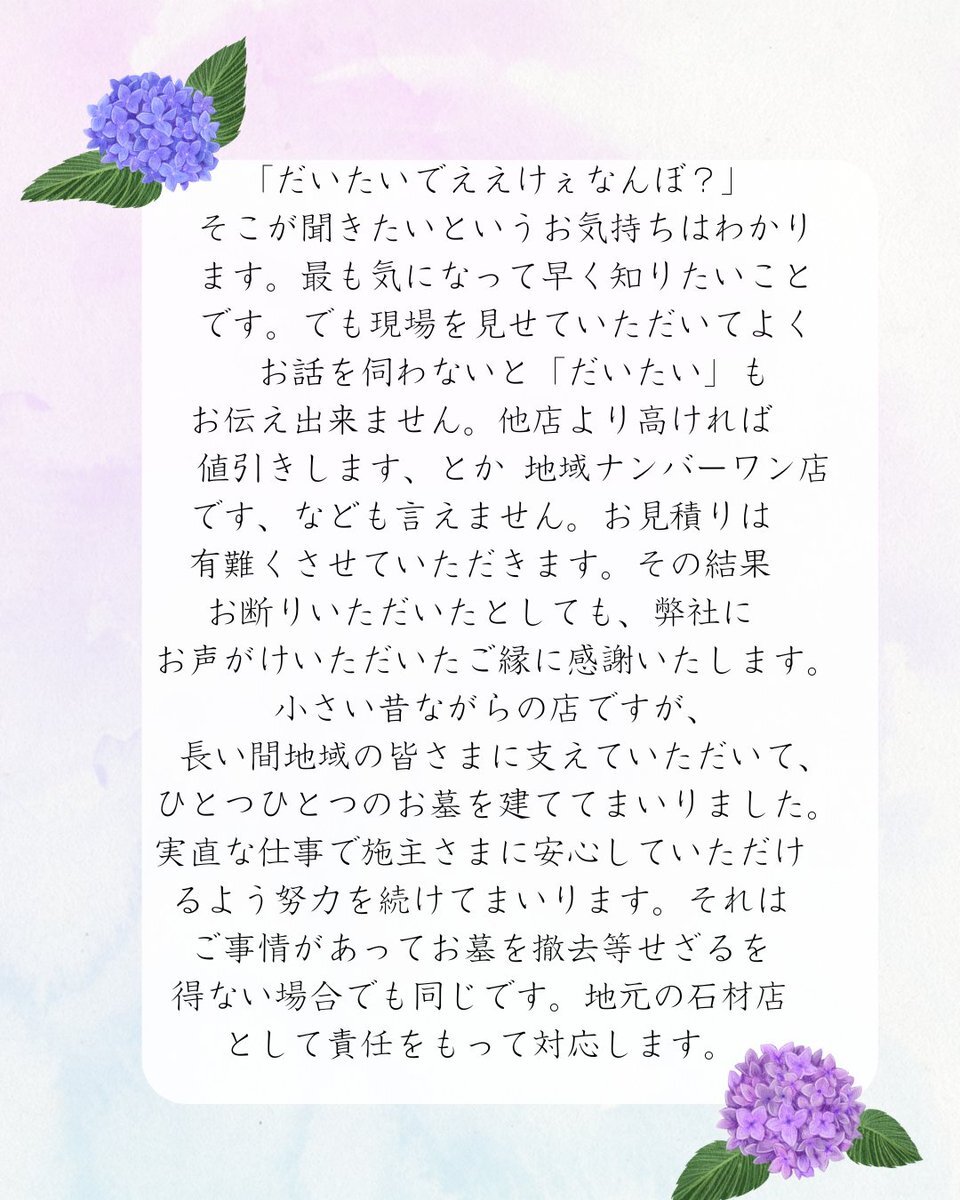 「だいたいでええけぇなんぼ？」
そこが聞きたいというお気持ちはわかり
ます。最も気になって早く知りたいこと
です。でも現場を見せていただいてよく
お話を伺わないと「だいたい」も
お伝え出来ません。他店より高ければ
値引きします、とか 地域ナンバーワン店
です、なども言えません。お見積りは
有難くさせていただきます。その結果
お断りいただいたとしても、弊社に
お声がけいただいたご縁に感謝いたします。
小さい昔ながらの店ですが、
長い間地域の皆さまに支えていただいて、
ひとつひとつのお墓を建ててまいりました。
実直な仕事で施主さまに安心していただけ
るよう努力を続けてまいります。それは
ご事情があってお墓を撤去等せざるを
得ない場合でも同じです。地元の石材店
として責任をもって対応します。